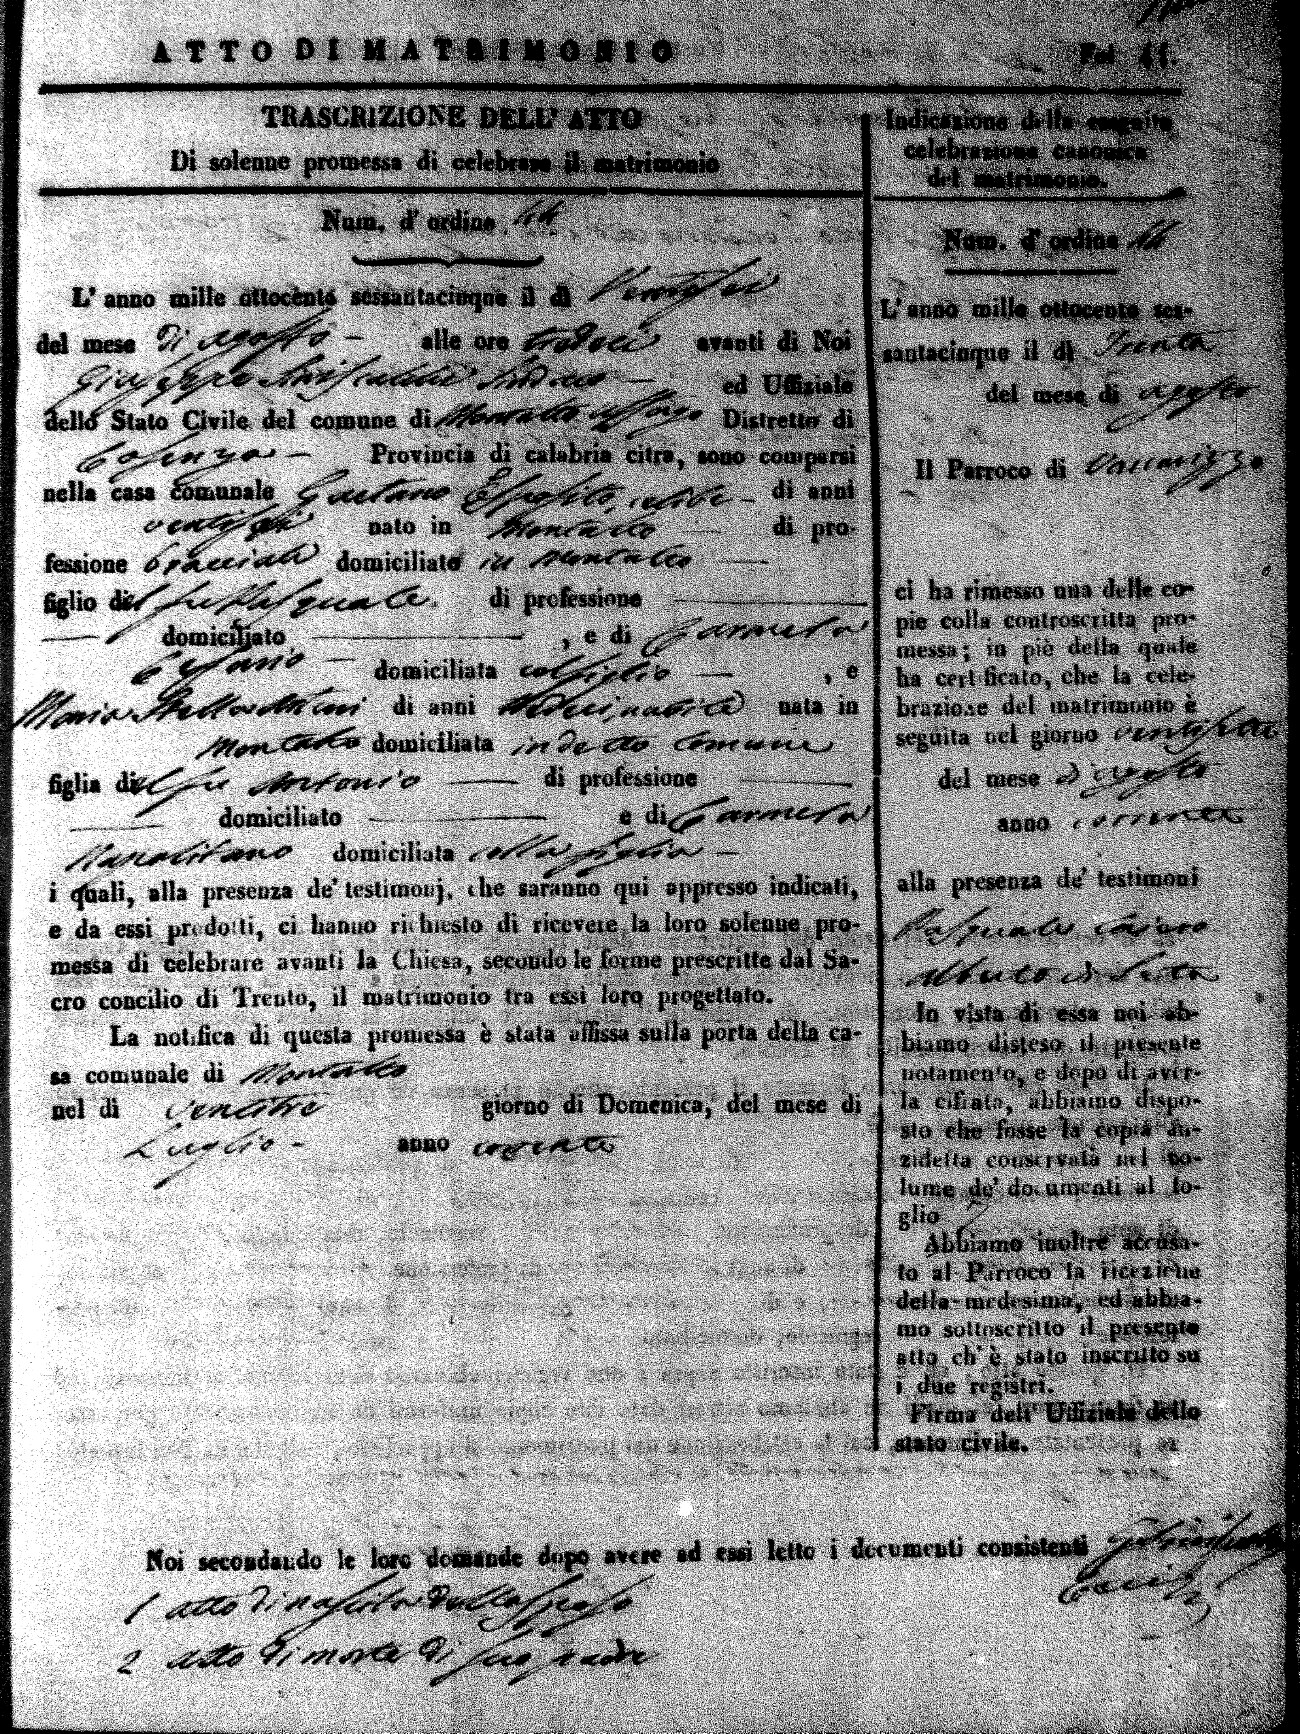 ATTO DI MATRIMONIO
Fol 41.
TRASCRIZIONE DELL' ATTO
Di solenne promessa di celebrare il matrimonio
Num. d' ordine 44
L' anno mille ottocento sessantacinque il dì Ventisei
del mese di agosto alle ore tredici avanti di Noi
Giuseppe Sindaco ed Uffiziale
dello Stato Civile del comune di Montalto uffugo Distretto di
Cosenza Provincia di calabria citra, sono comparsi
nella casa comunale Gaetano Esposito, celibe di anni
ventisei nato in Montalto di pro-
fessione bracciale domiciliato in Montalto
figlio del fu Pasquale di professione
domiciliato , e di Carmela
Cesario domiciliata col figlio , e
Maria di anni nata in
Montalto domiciliata in detto comune
figlia del fu Antonio di professione
domiciliato e di Carmela
Napolitano domiciliata colla figlia
i quali, alla presenza de' testimonj, che saranno qui appresso indicati,
e da essi prodotti, ci hanno richiesto di ricevere la loro solenne pro-
messa di celebrare avanti la Chiesa, secondo le forme prescritte dal Sa-
cro concilio di Trento, il matrimonio tra essi loro progettato.
La notifica di questa promessa è stata affissa sulla porta della ca-
sa comunale di Montalto
nel dì ventitre giorno di Domenica, del mese di
Luglio anno corrente
Indicazione della eseguita
celebrazione canonica
del matrimonio.
Num. d' ordine 44
L' anno mille ottocento ses-
santacinque il dì Trenta
del mese di agosto
Il Parroco di Vaccarizzo
ci ha rimesso una delle co-
pie colla controscritta pro-
messa; in piè della quale
ha certificato, che la cele-
brazione del matrimonio è
seguita nel giorno ventisette
del mese di agosto
anno corrente
alla presenza de' testimoni
Pasquale
Alberto di Seta
In vista di essa noi ab-
biamo disteso il presente
notamento, e dopo di aver-
la cifrata, abbiamo dispo-
sto che fosse la copia an-
zidetta conservata nel vo-
lume de' documenti al fo-
glio 7
Abbiamo inoltre accusa-
to al Parroco la ricezione
della medesima, ed abbia-
mo sottoscritto il presente
atto ch' è stato inscritto su
i due registri.
Firma dell' Uffiziale dello
stato civile.
Noi secondando le loro domande dopo avere ad essi letto i documenti consistenti
1 atto di nascita dello sposo
2 Atto di morte di suo padre